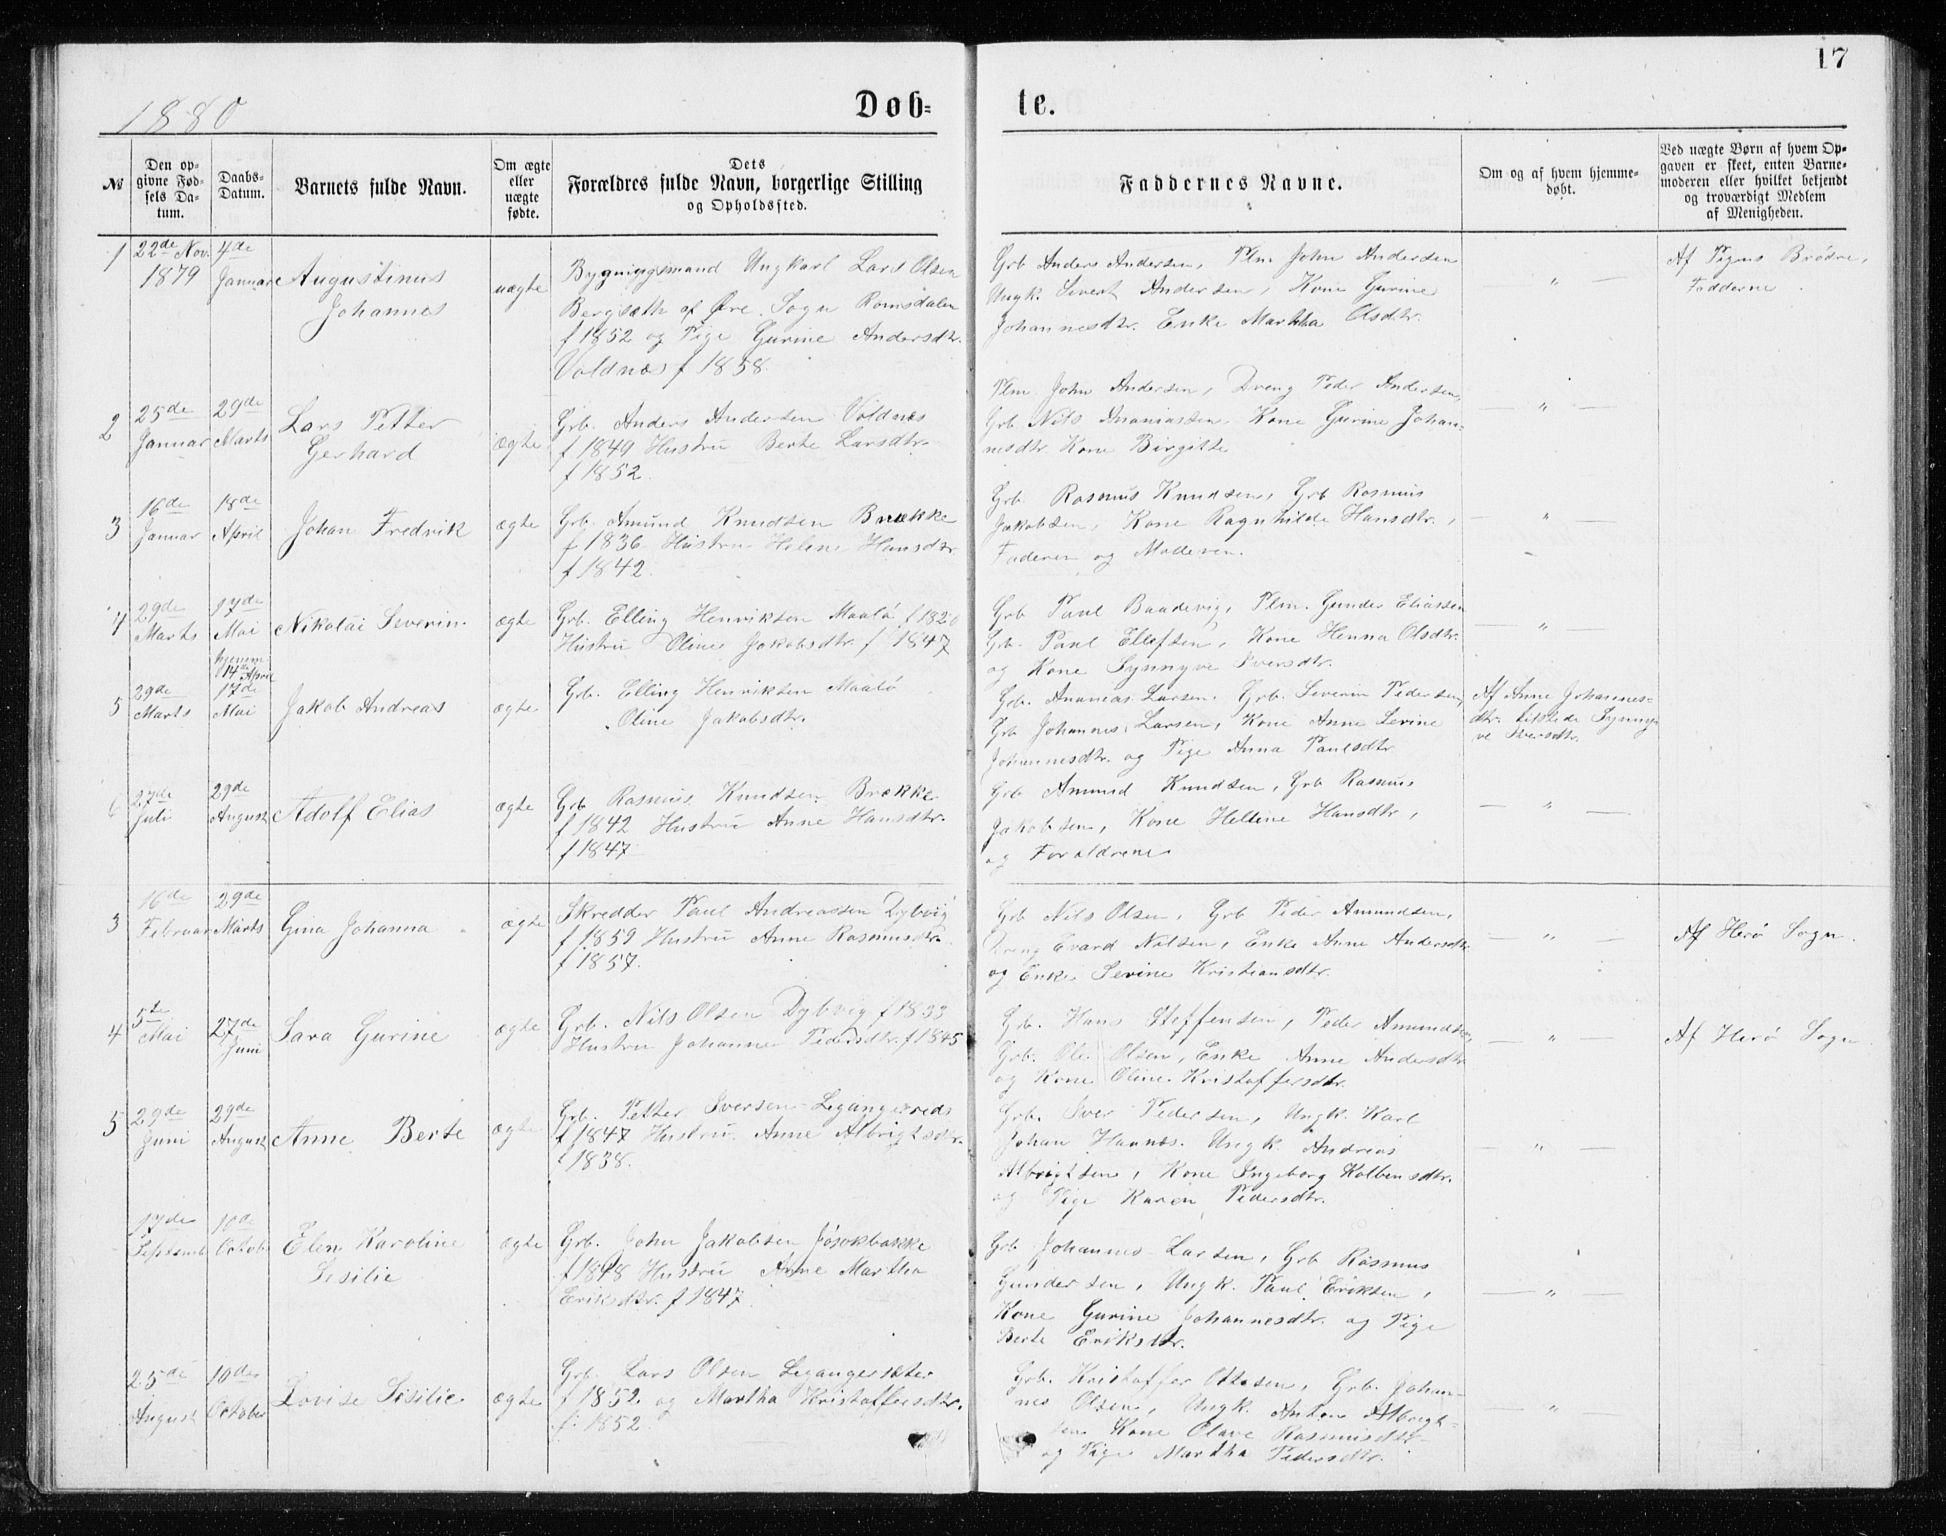 17
1880
Døb-
te.
№
Den op-
givne Fød-
sels Da-
tum.
Daabs-
Datum.
Barnets fulde Navn.
Om ægte
eller
uægte
fødte.
Dets
Forældres fulde Navn, borgerlige Stilling
og Opholdssted.
Faddernes Navne.
Om og af hvem hjemme-
døbt.
Ved uægte Børn af hvem Op-
gaven er skeet, enten Barne-
moderen eller hvilket bekjendt
og troværdigt Medlem
af Menigheden.
1
22de Nov.
1879
4de
Januar
Augustinus
Johannes
uægte
Bygningsmand Ungkarl Lars Olsen
Bergsæth af Øre Sogn Romsdalen
f 1852 og Pige Gurine Andersdtr.
Voldnæs f 1858.
Grb Anders Andersen, Plm. John Andersen
Ungk. Sivert Andersen, Kone Gurine
Johannesdtr. Enke Martha Olsdtr.
— " —
Af Pigens Brødre,
Fadderne.
2
25de
Januar
29de
Marts
Lars Petter
Gerhard
ægte
Grb. Anders Andersen Voldnæs
f 1849 Hustru Berte Larsdtr.
f 1852.
Plm. John Andersen, Dreng Peder Andersen,
Grb Nils Ananiassen, Kone Gurine Johan-
nesdtr. Kone Birgitte
— " —
3
16de
Januar
18de
April
Johan Fredrik
ægte
Grb. Amund Knudsen Brække
f 1836 Hustru Helene Hansdtr.
f 1842.
Grb. Rasmus Knudsen, Grb Rasmus
Jakobsen, Kone Ragnhilde Hansdtr.,
Faderen og Moderen.
— " —
4
29de
Marts
17de
Mai
Nikolai Severin
ægte
Grb. Elling Henriksen Maalø f 1820
Hustru Oline Jakobsdtr. f 1847
Grb Paul Baadevig, Plm. Gunder Eliassen
Grb. Paul Ellefsen, Kone Henna Olsdtr.
og Kone Synnyve Iversdtr.
— " —
5
29de
Marts
hjemm.
14de April
17de
Mai
Jakob Andreas
ægte
Grb. Elling Henriksen Maalø
Oline Jakobsdtr.
Grb. Ananias Larsen, Grb. Severin Pedersen,
Grb Johannes Larsen, Kone Anne Sevine
Johannesdtr. og Pige Anna Paulsdtr.
Af Anne Johannes-
dtr. tilstede Synny-
ve Iversdtr.
6
27de
Juli
29de
August
Adolf Elias
ægte
Grb Rasmus Knudsen Brække
f 1842 Hustru Anne Hansdtr.
f 1847
Grb Amund Knudsen, Grb Rasmus
Jakobsen, Kone Hellene Hansdtr,
og Forældrene
— " —
3
16de
Februar
29de
Marts
Gina Johanna
ægte
Skredder Paul Andreassen Dybvig
f 1859 Hustru Anne Rasmusdtr.
f 1857.
Grb Nils Olsen, Grb Peder Amundsen,
Dreng Evard Nilsen, Enke Anne Andersdtr.
og Enke Sevine Kristiansdtr.
— " —
Af Herø Sogn.
4
5te
Mai
27de
Juni
Sara Gurine
ægte
Grb. Nils Olsen Dybvig f 1833
Hustru Johanne Pedersdtr. f 1845
Grb. Hans Steffensen, Peder Amundsen,
Grb. Ole Olsen, Enke Anne Andersdtr
og Kone Oline Kristoffersdtr.
— " —
Af Herø Sogn
5
29de
Juni
29de
August
Anne Berte
ægte
Grb. Petter Iversen
f 1847 Hustru Anne Albrigtsdtr.
f 1838.
Grb. Iver Pedersen, Ungk. Karl
Johan Hannes. Ungk Andreas
Albrigtsen, Kone Ingeborg Kolbensdtr.
og Pige Karen Pedersdtr.
— " —
17de
Septemb
10de
Octob
Elen Karoline
Sesilie
ægte
Grb. John Jakobsen Jøsokbakke
f 1848 Hustru Anne Martha
Eriksdtr. f 1847.
Grb Johannes Larsen, Grb Rasmus
Gundersen, Ungk. Paul Eriksen,
Kone Gurine Johannesdtr. og Pige
Berte Eriksdtr.
— " —
25de
August
10de
October
Lovise Sisilie
ægte
Grb. Lars Olsen Legangersæter
f 1852 og Martha Kristoffersdtr.
f 1852.
Grb. Kristoffer Ottesen, Grb. Johan-
nes Olsen, Ungk. Anton Albrigt-
sen Kone Olave Rasmusdtr
og Pige Martha Pedersdtr.
— " —